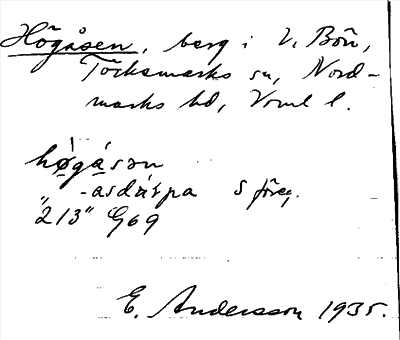 Högåsen, berg i V. Bön,
Töcksmarks sn, Nord-
marks hd, Vrml l.
hø̀gásən
" -asdáʹpa S föreg.
"213" G69
E. Andersson 1935.